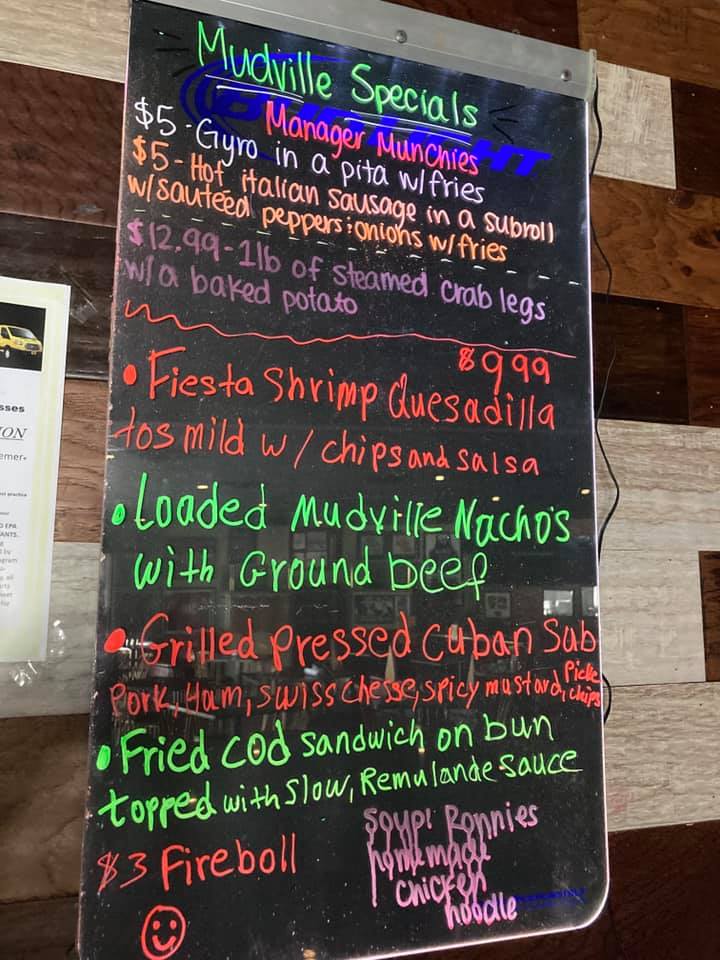 Mudville Specials
BUD LIGHT
Manager Munchies
$5-Gyro in a pita w/fries
$5-Hot italian sausage in a subroll
w/sauteed peppers+onions w/fries
$12.99-1lb of steamed crab legs
w/a baked potato
$9.99
• Fiesta Shrimp Quesadilla
tos mild w/chips and salsa
• Loaded Mudville Nacho's
with Ground beef
• Grilled pressed Cuban Sub
Pork, Ham, Swiss Chesse, spicy mustard, Pickle chips
• Fried cod sandwich on bun
topped with Slow, Remulande sauce
$3 Fireboll
Soup! Ronnies
homemade
chicken
noodle
sses
ION
emer-
EPA